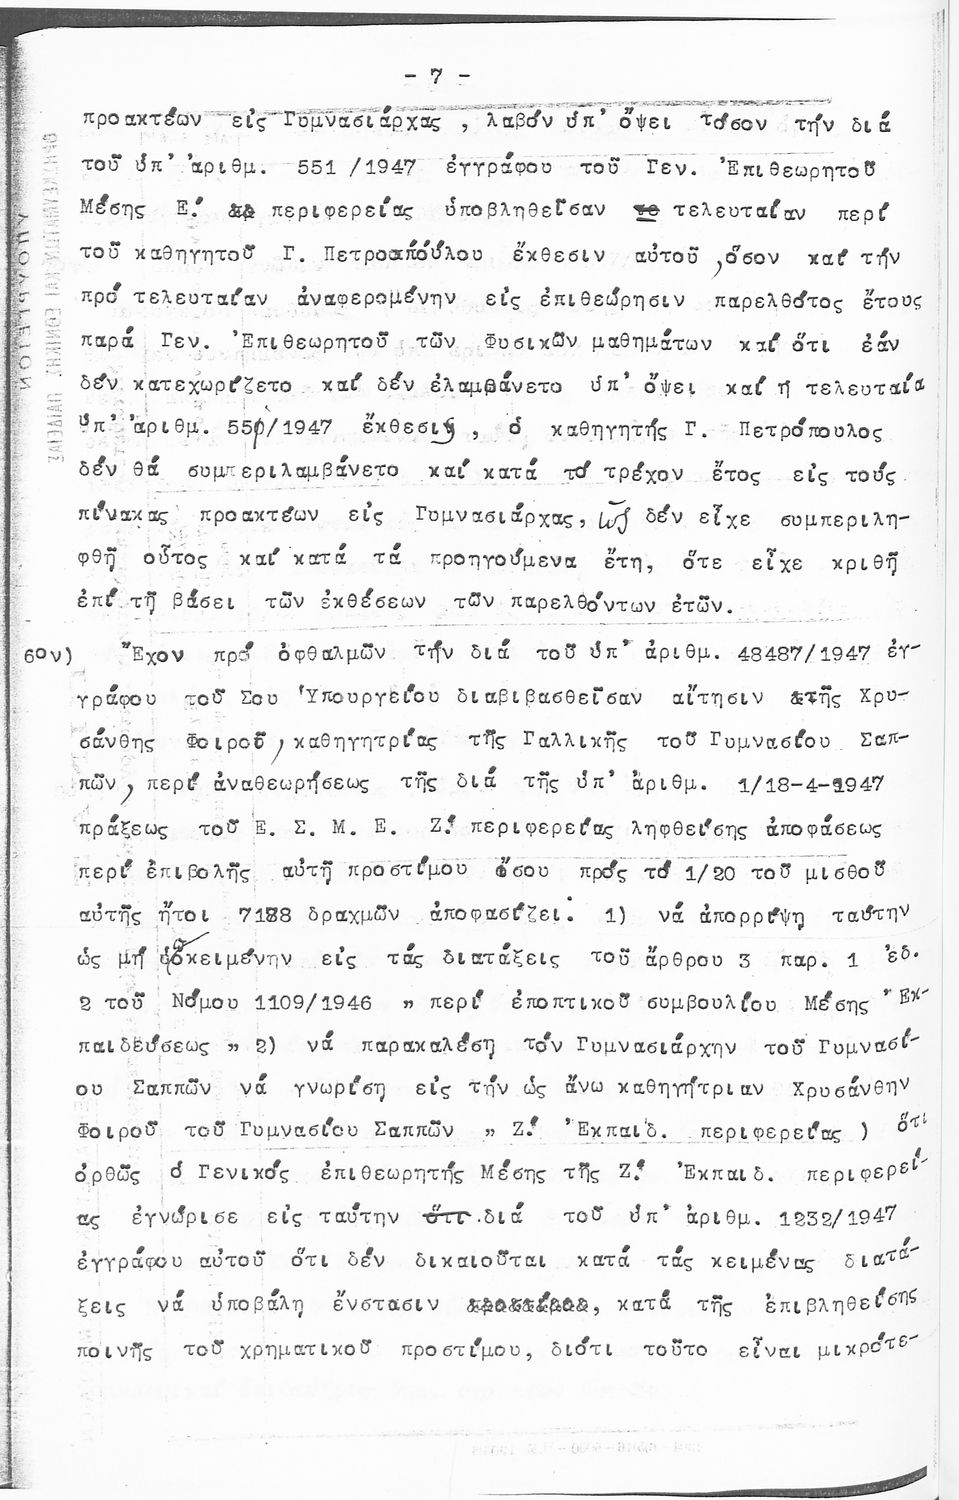 - 7 -
προακτέων εἰς Γυμνασιάρχας , λαβόν ὑπ' ὄψει τόσον τήν διά
τοῦ ὑπ' ἀριθμ. 551 /1947 ἐγγράφου τοῦ Γεν. Ἐπιθεωρητοῦ
Μέσης Ε.' περιφερείας ὑποβληθεῖσαν τελευταίαν περί
τοῦ καθηγητοῦ Γ. Πετροπούλου ἔκθεσιν αὐτοῦ ,ὅσον καί τήν
πρό τελευταίαν ἀναφερομένην εἰς ἐπιθεώρησιν παρελθότος ἔτους
παρά Γεν. Ἐπιθεωρητοῦ τῶν Φυσικῶν μαθημάτων καί ὅτι ἐάν
δέν κατεχωρίζετο καί δέν ἐλαμβάνετο ὑπ' ὄψει καί ἡ τελευταία
ὑπ' ἀριθμ. 550/1947 ἔκθεσις , ὁ καθηγητής Γ. Πετρόπουλος
δέν θά συμπεριλαμβάνετο καί κατά τό τρέχον ἔτος εἰς τούς
πίνακας προακτέων εἰς Γυμνασιάρχας, ὡς δέν εἶχε συμπεριλη-
φθῆ οὗτος καί κατά τά προηγούμενα ἔτη, ὅτε εἶχε κριθῆ
ἐπί τῆ βάσει τῶν ἐκθέσεων τῶν παρελθόντων ἐτῶν.
6ον) Ἔχον πρό ὀφθαλμῶν τήν διά τοῦ ὑπ' ἀριθμ. 48487/1947 ἐγ-
γράφου τοῦ Σου Ὑπουργείου διαβιβασθεῖσαν αἴτησιν τῆς Χρυ-
σάνθης Φοιροῦ, καθηγητρίας τῆς Γαλλικῆς τοῦ Γυμνασίου Σαπ-
πῶν, περί ἀναθεωρήσεως τῆς διά τῆς ὑπ' ἀριθμ. 1/18-4-1947
πράξεως τοῦ Ε. Σ. Μ. Ε. Ζ.' περιφερείας ληφθείσης ἀποφάσεως
περί ἐπιβολῆς αὐτῆ προστίμου ἴσου πρός τό 1/20 τοῦ μισθοῦ
αὐτῆς ἤτοι 7188 δραχμῶν ἀποφασίζει: 1) νά ἀπορρίψη ταύτην
ὡς μή ὑποκειμένην εἰς τάς διατάξεις τοῦ ἄρθρου 3 παρ. 1 ἐδ.
2 τοῦ Νόμου 1109/1946 " περί ἐποπτικοῦ συμβουλίου Μέσης Ἐκ-
παιδεύσεως " 2) νά παρακαλέση τόν Γυμνασιάρχην τοῦ Γυμνασί-
ου Σαππῶν νά γνωρίση εἰς τήν ὡς ἄνω καθηγήτριαν Χρυσάνθην
Φοιροῦ τοῦ Γυμνασίου Σαππῶν " Ζ.' Ἐκπαιδ. περιφερείας ) ὅτι
ὀρθῶς ὁ Γενικός ἐπιθεωρητής Μέσης τῆς Ζ.' Ἐκπαιδ. περιφερεί-
ας ἐγνώρισε εἰς ταύτην ὅτι διά τοῦ ὑπ' ἀριθμ. 1232/1947
ἐγγράφου αὐτοῦ ὅτι δέν δικαιοῦται κατά τάς κειμένας διατά-
ξεις νά ὑποβάλη ἔνστασιν , κατά τῆς ἐπιβληθείσης
ποινῆς τοῦ χρηματικοῦ προστίμου, διότι τοῦτο εἶναι μικρότε-